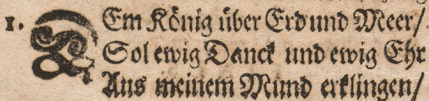 1. DEm König über Erd und Meer/
Sol ewig Danck und ewig Ehr
Aus meinem Mund erklingen/